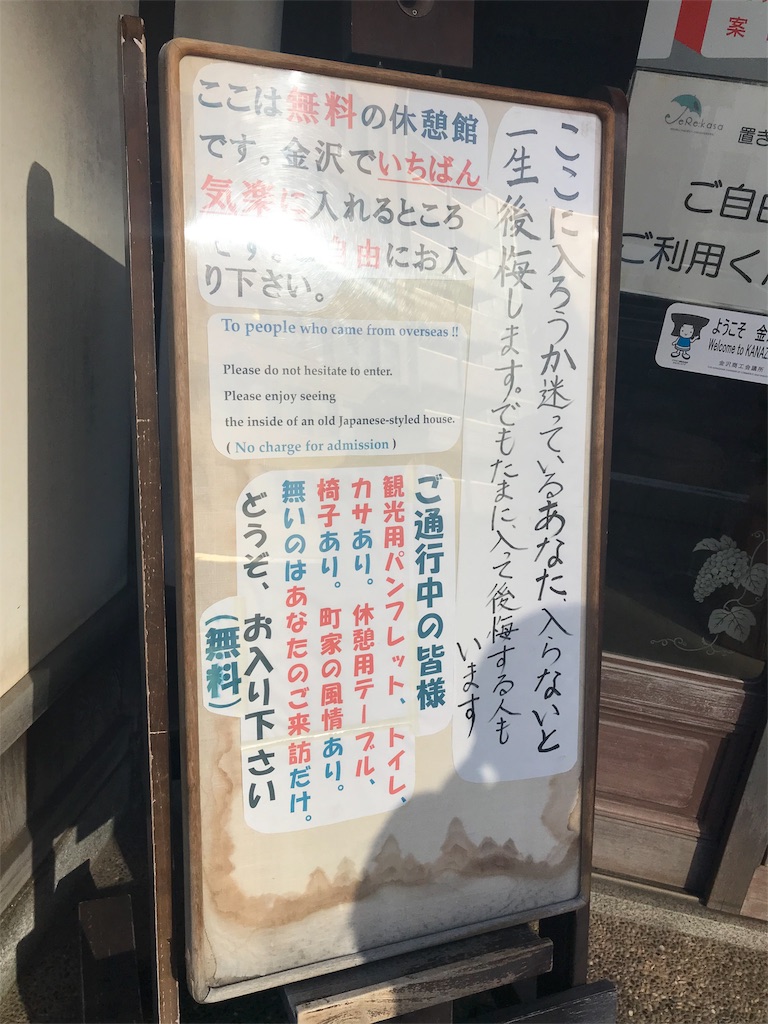 ここは無料の休憩館
です。金沢でいちばん
気楽に入れるところ
です。 自由にお入
り下さい。
To people who came from overseas !!
Please do not hesitate to enter.
Please enjoy seeing
the inside of an old Japanese-styled house.
( No charge for admission )
ここに入ろうか迷っているあなた、入らないと
一生後悔します。でもたまに入って後悔する人も
います
ご通行中の皆様
観光用パンフレット、トイレ、
カサあり。休憩用テーブル、
椅子あり。町家の風情あり。
無いのはあなたのご来訪だけ。
どうぞ、お入り下さい
(無料)
案
置き
ご自由
ご利用く
ようこそ 金
Welcome to KANAZ
金沢商工会議所